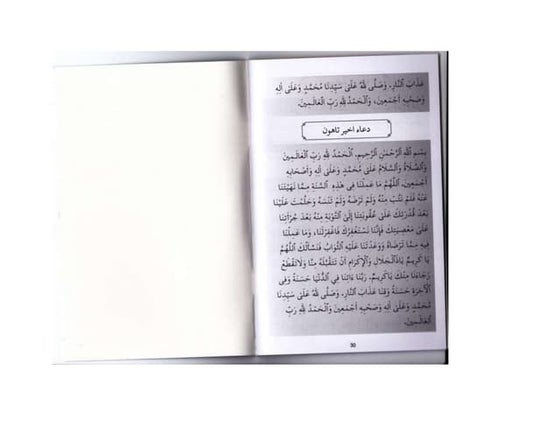 عَذَابَ ٱلنَّارِ. وَصَلَّى ٱللهُ عَلَىٰ سَيِّدِنَا مُحَمَّدٍ وَعَلَىٰ اٰلِهِ
وَصَحْبِهِ أَجْمَعِينَ، وَٱلْحَمْدُ لِلهِ رَبِّ ٱلْعَالَمِينَ.
دعاء اخير تاهون
بِسْمِ ٱللهِ ٱلرَّحْمٰنِ ٱلرَّحِيمِ. ٱلْحَمْدُ لِلهِ رَبِّ ٱلْعَالَمِينَ
وَٱلصَّلَاةُ وَٱلسَّلَامُ عَلَىٰ مُحَمَّدٍ وَعَلَىٰ اٰلِهِ وَأَصْحَابِهِ
أَجْمَعِينَ. ٱللّٰهُمَّ مَا عَمِلْنَا فِى هٰذِهِ ٱلسَّنَةِ مِمَّا نَهَيْتَنَا
عَنْهُ فَلَمْ نَتُبْ مِنْهُ وَلَمْ تَرْضَهُ وَلَمْ تَنْسَهُ وَحَلُمْتَ عَلَيْنَا
بَعْدَ قُدْرَتِكَ عَلَىٰ عُقُوبَتِنَا إِلَى ٱلتَّوْبَةِ مِنْهُ بَعْدَ جُرْأَتِنَا
عَلَىٰ مَعْصِيَتِكَ فَإِنَّنَا نَسْتَغْفِرُكَ فَاغْفِرْلَنَا، وَمَا عَمِلْنَا
فِيهِ مِمَّا تَرْضَاهُ وَوَعَدْتَنَا عَلَيْهِ ٱلثَّوَابَ فَنَسْأَلُكَ ٱللّٰهُمَّ
يَا كَرِيمُ يَاذَاٱلْجَلَالِ وَٱلْإِكْرَامِ أَنْ تَتَقَبَّلَهُ مِنَّا وَلَاتَقْطَعْ
رَجَاءَنَا مِنْكَ يَاكَرِيمُ. رَبَّنَا ءَاتِنَا فِى ٱلدُّنْيَا حَسَنَةً وَفِى
ٱلْأٰخِرَةِ حَسَنَةً وَقِنَا عَذَابَ ٱلنَّارِ. وَصَلَّى ٱللهُ عَلَىٰ سَيِّدِنَا
مُحَمَّدٍ وَعَلَىٰ اٰلِهِ وَصَحْبِهِ أَجْمَعِينَ وَٱلْحَمْدُ لِلهِ رَبِّ
ٱلْعَالَمِينَ.
30